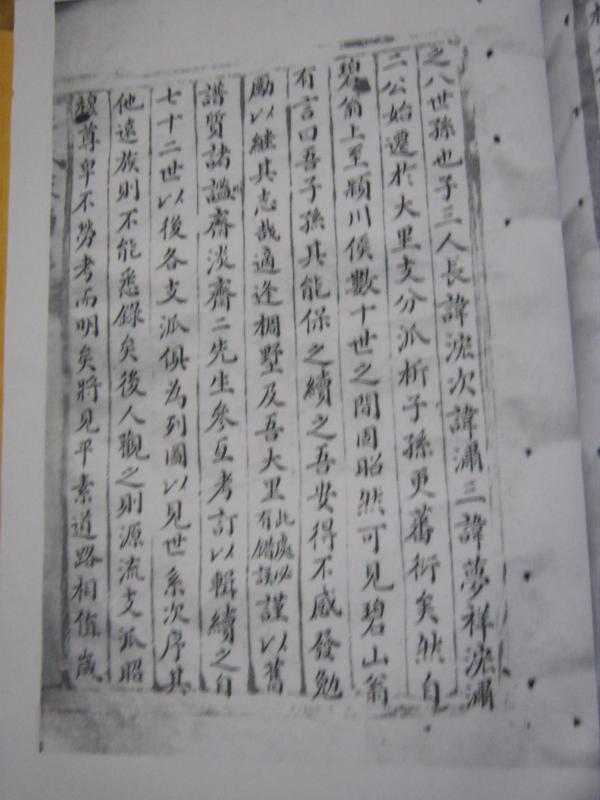 之八世孫也子三人長諱浤次諱潚三諱夢祥浤潚
二公始遷於大里支分派析子孫更蕃衍矣然自
碧翁上至潁川侯數十世之間固昭然可見碧山翁
有言曰吾子孫其能保之續之吾安得不感發勉
勵以継其志哉適逢棡墅及吾大里此處必有錯誤謹以舊
譜質諸謐齋淡齋二先生參互考訂以輯續之自
七十二世以後各支派俱為列圖以見世系次序其
他遠族則不能悉錄矣後人觀之則源流支派昭
穆尊卑不勞考而明矣將見平素道路相值歲